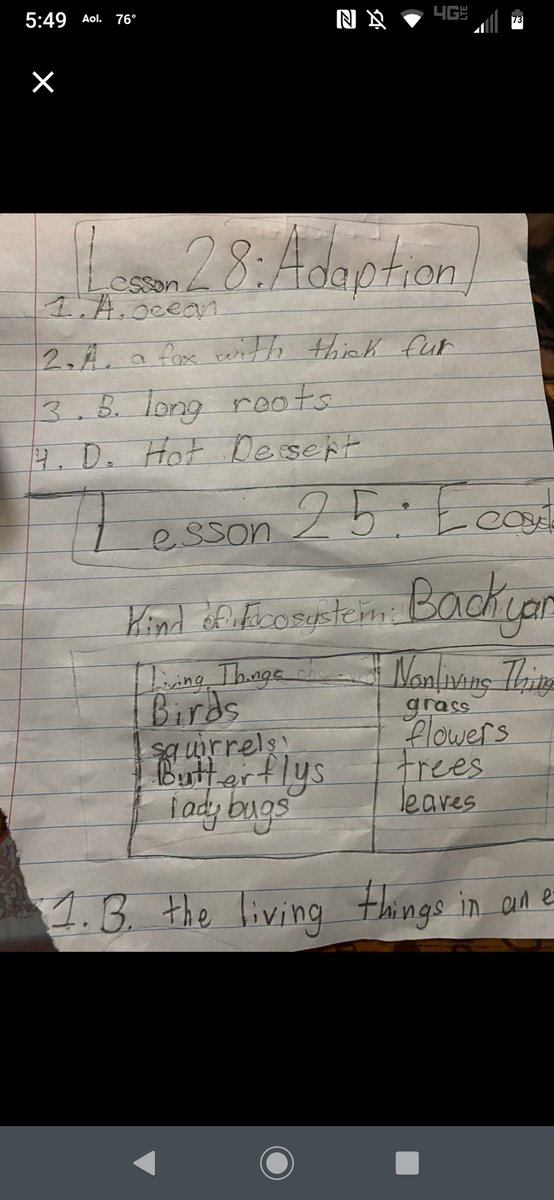 5:49 Aol. 76° 4G LTE 73
Lesson 28: Adaption
1. A. ocean
2. A. a fox with thick fur
3. B. long roots
4. D. Hot Desert
Lesson 25: Ecosyst
Kind of Ecosystem: Backyar
Living Things Nonliving Thing
Birds grass
squirrels flowers
Butterflys trees
lady bugs leaves
1. B. the living things in an e